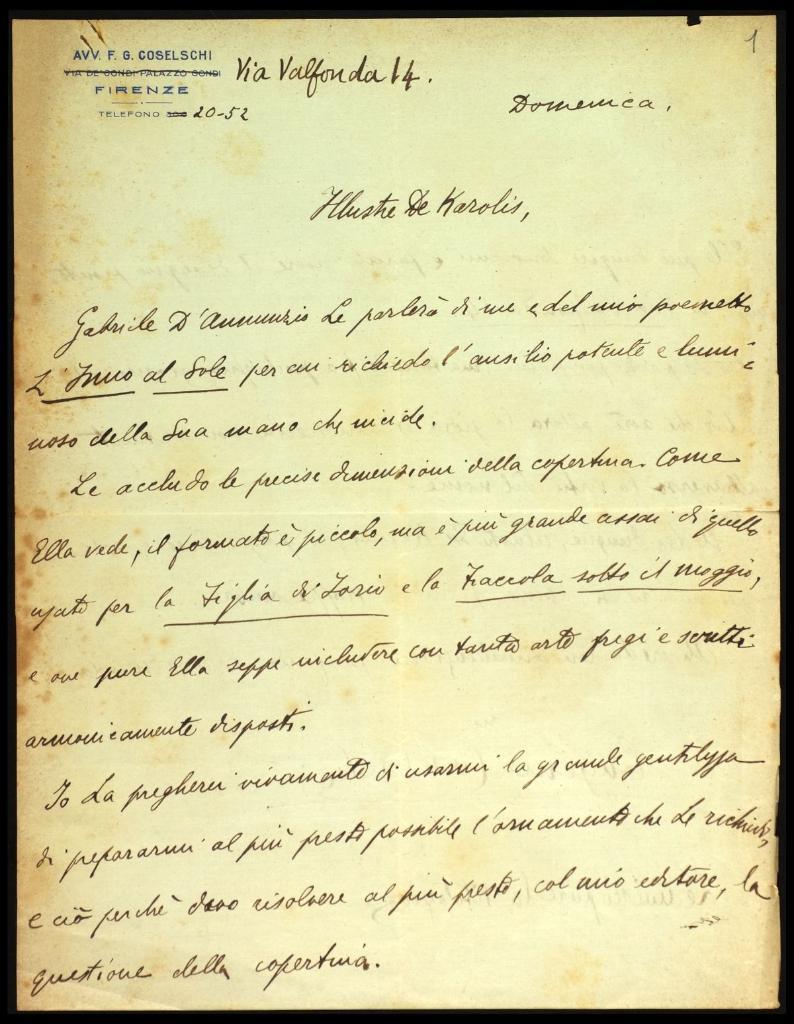 1
AVV. F. G. COSELSCHI
VIA DE' GONDI-PALAZZO GONDI Via Valfonda 14.
FIRENZE
TELEFONO 20-52
Domenica.
Illustre De Karolis,
Gabriele D'Annunzio Le parlerà di me e del mio poemetto
L'Inno al Sole per cui richiedo l'ausilio potente e lumi=
noso della Sua mano che incide.
Le accludo le precise dimensioni della copertina. Come
Ella vede, il formato è piccolo, ma è più grande assai di quello
usato per la Figlia di Iorio e la Fiaccola sotto il moggio,
e ove pure Ella seppe includere con tanta arte fregi e scritti
armonicamente disposti.
Io La pregherei vivamente di usarmi la grande gentilezza
di prepararmi al più presto possibile l'ornamento che Le richiedo,
e ciò perchè devo risolvere al più presto, col mio editore, la
questione della copertina.